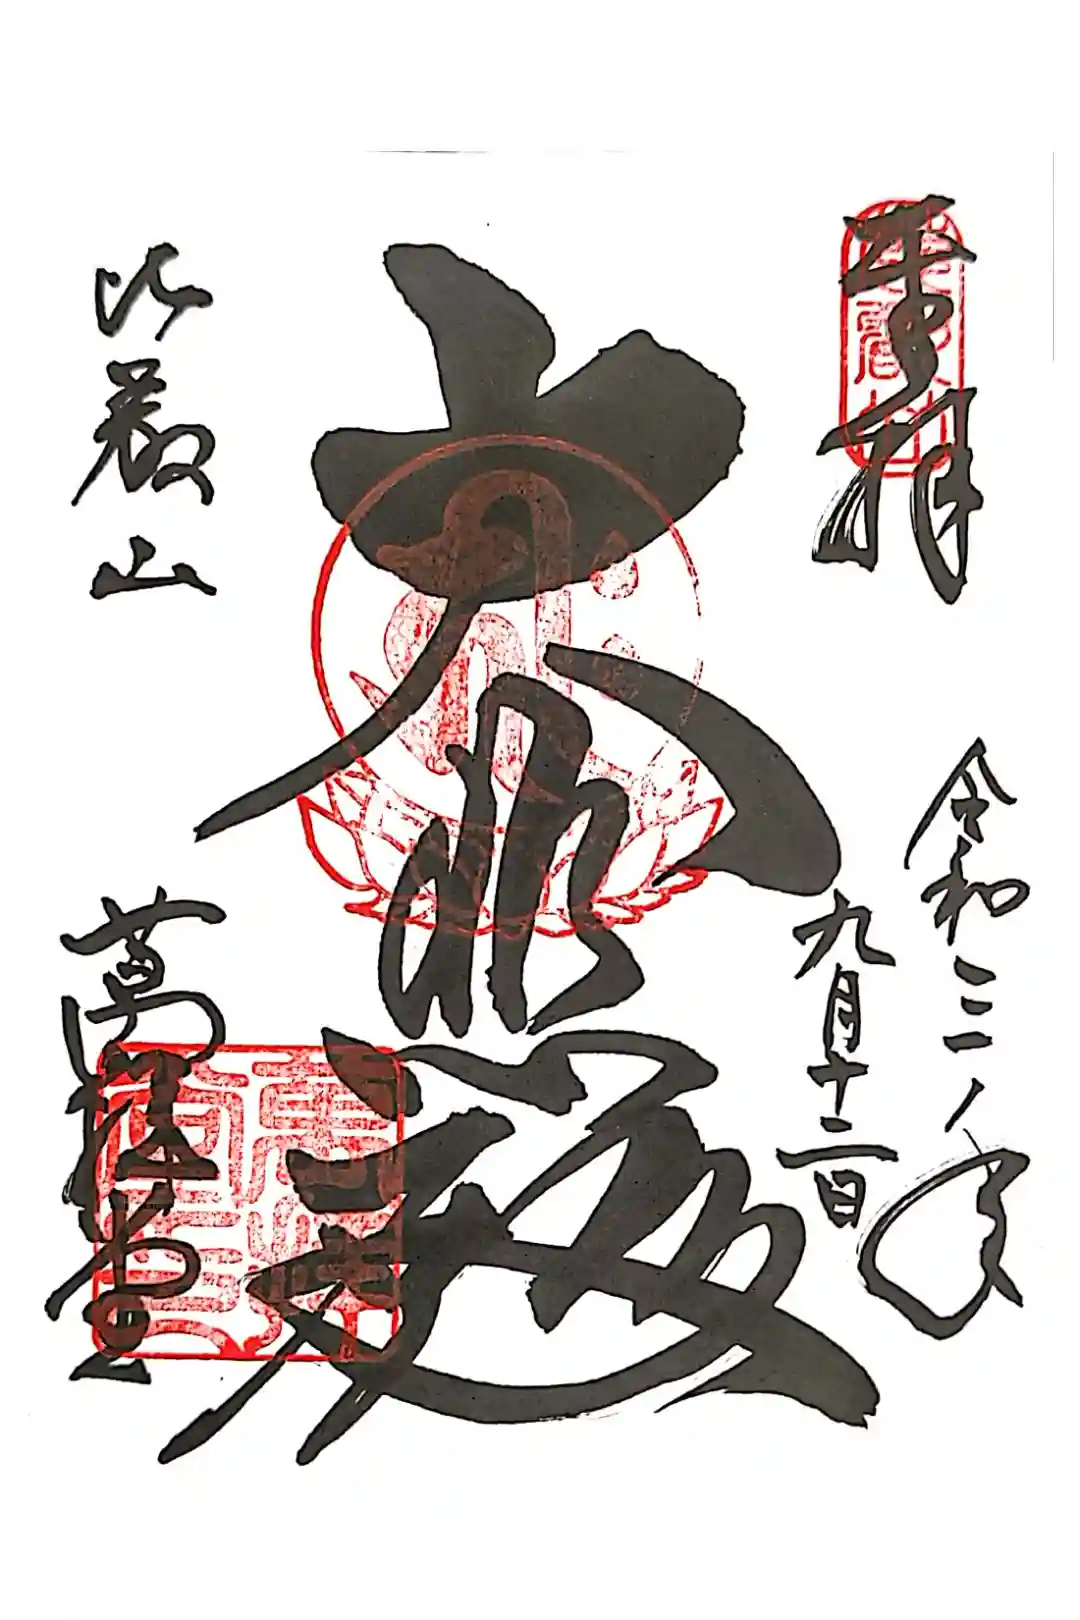 奉拝
令和三年
九月十二日
大悲殿
比叡山
萬拝堂